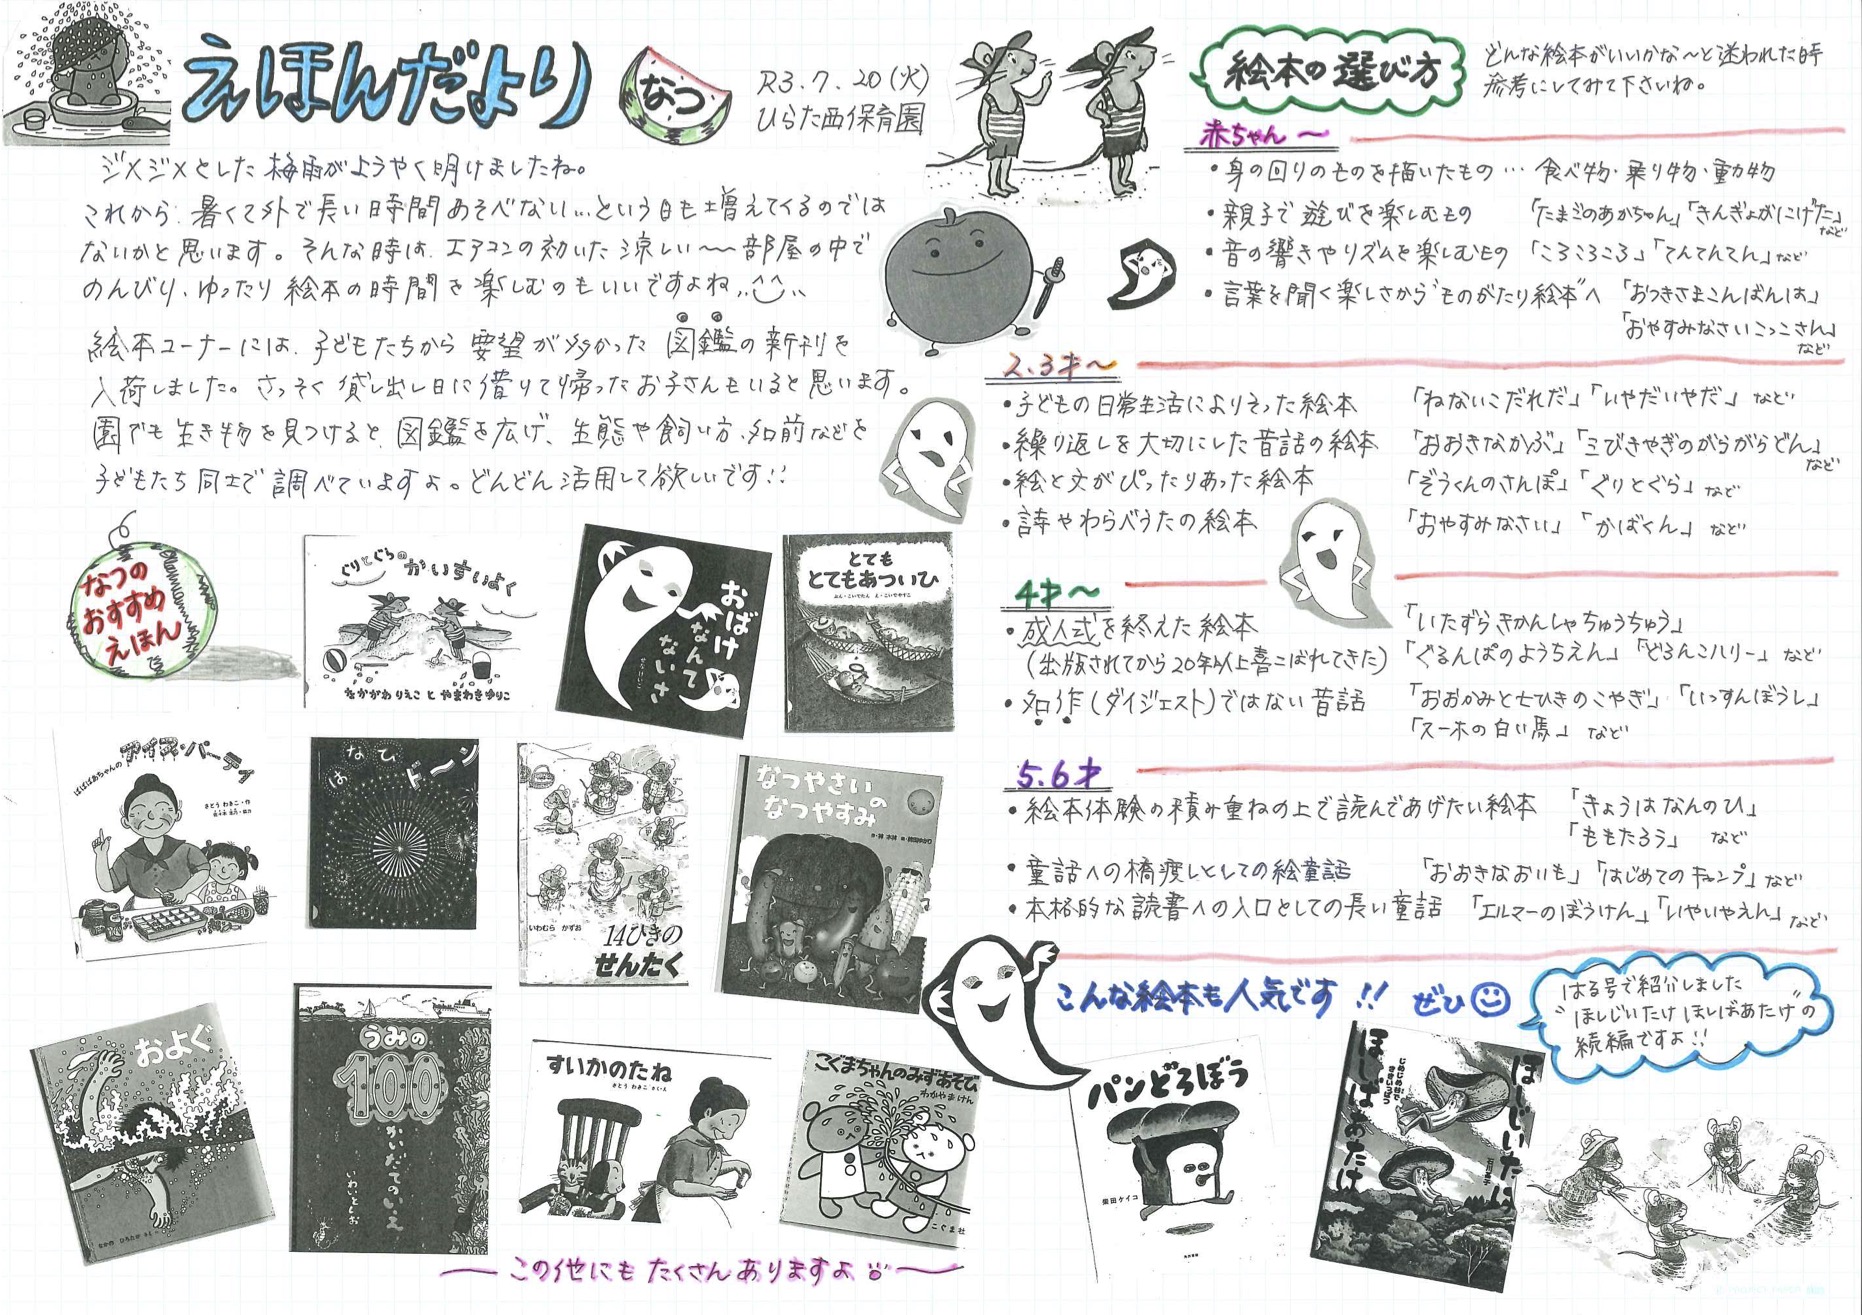 えほんだより
なつ
R3.7.20(火)
ひらた西保育園
ジメジメとした梅雨がようやく明けましたね。
これから、暑くて外で長い時間あそべない…という日も増えてくるのでは
ないかと思います。そんな時は、エアコンの効いた涼しい〜部屋の中で
のんびり、ゆったり絵本の時間を楽しむのもいいですよね..
絵本コーナーには、子どもたちから要望が多かった図鑑の新刊を
入荷しました。さっそく貸し出し日に借りて帰ったお子さんもいると思います。
園でも生き物を見つけると、図鑑を広げ、生態や飼い方、名前などを
子どもたち同士で調べていますよ。どんどん活用して欲しいです!!
なつの
おすすめ
えほん
ぐりとぐらの かいすいよく
なかがわりえこ と やまわきゆりこ
おばけ
なんて
ないさ
せなけいこ
とても
とてもあついひ
ぶん・こいでたん え・こいでやすこ
ばばばあちゃんの アイス・パーティ
さとうわきこ・作
はなび ドーン
いわむら かずお
14ひきの
せんたく
なつやさいの
なつやすみ
およぐ
なかの ひろたか
うみの
100
かいだてのいえ
いわいとしお
すいかのたね
さとうわきこ さく・え
こぐまちゃんのみずあそび
わかやまけん
こぐま社
この他にも たくさん ありますよ
絵本の選び方
どんな絵本がいいかな〜と迷われた時
参考にしてみて下さいね。
赤ちゃん〜
・身の回りのものを描いたもの … 食べ物・乗り物・動物
・親子で遊びを楽しむもの 「たまごのあかちゃん」「きんぎょがにげた」など
・音の響きやリズムを楽しむもの 「ころころころ」「てんてんてん」など
・言葉を聞く楽しさから“ものがたり絵本”へ 「おつきさまこんばんは」
「おやすみなさいこっこさん」など
2.3才〜
・子どもの日常生活によりそった絵本 「ねないこだれだ」「いやだいやだ」など
・繰り返しを大切にした昔話の絵本 「おおきなかぶ」「三びきやぎのがらがらどん」など
・絵と文がぴったりあった絵本 「ぞうくんのさんぽ」「ぐりとぐら」など
・詩やわらべうたの絵本 「おやすみなさい」「かばくん」など
4才〜
・成人式を終えた絵本 「いたずらきかんしゃちゅうちゅう」
(出版されてから20年以上喜こばれてきた) 「ぐるんぱのようちえん」「どろんこハリー」など
・名作(ダイジェスト)ではない昔話 「おおかみと七ひきのこやぎ」「いっすんぼうし」
「スーホの白い馬」など
5.6才
・絵本体験の積み重ねの上で読んであげたい絵本 「きょうはなんのひ」
「ももたろう」 など
・童話への橋渡しとしての絵童話 「おおきなおいも」「はじめてのキャンプ」など
・本格的な読書への入口としての長い童話 「エルマーのぼうけん」「いやいやえん」など
こんな絵本も人気です!! ぜひ
はる号で紹介しました
“ほしじいたけ ほしばあたけ”の
続編ですよ!!
パンどろぼう
柴田ケイコ
ほしじいたけ
ほしばあたけ
じめじめ谷で
ききいっぱつ
石川基子